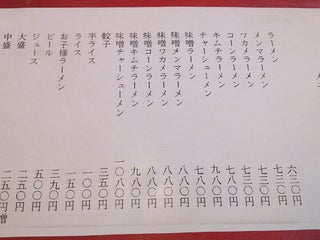 ラーメン 六三〇円
メンマラーメン 七三〇円
ワカメラーメン 七三〇円
コーンラーメン 七三〇円
キムチラーメン 七八〇円
チャーシューメン 九八〇円
味噌ラーメン 七八〇円
味噌メンマラーメン 八八〇円
味噌ワカメラーメン 八八〇円
味噌コーンラーメン 八八〇円
味噌キムチラーメン 九八〇円
味噌チャーシューメン 一〇八〇円
餃子 三五〇円
半ライス 一〇〇円
ライス 一五〇円
お子様ラーメン 三九〇円
ビール 五〇〇円
ジュース 二五〇円
大盛
中盛